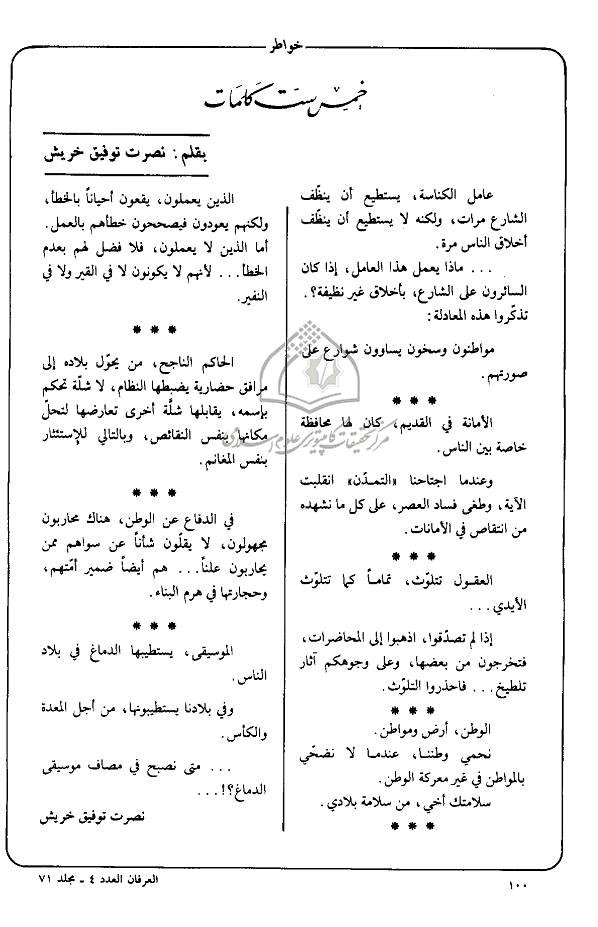 خواطر
خمس ست كلمات
بقلم: نصرت توفيق خريش
عامل الكناسة، يستطيع أن ينظّف
الشارع مرات، ولكنه لا يستطيع أن ينظّف
أخلاق الناس مرة.
... ماذا يعمل هذا العامل، إذا كان
السائرون على الشارع، بأخلاق غير نظيفة؟.
تذكّروا هذه المعادلة:
مواطنون وسخون يساوون شوارع على
صورتهم.
* * *
الأمانة في القديم، كان لها محافظة
خاصة بين الناس.
وعندما اجتاحنا «التمدّن» انقلبت
الآية، وطغى فساد العصر، على كل ما نشهده
من انتقاص في الأمانات.
* * *
العقول تتلوّث، تماماً كما تتلوّث
الأيدي...
إذا لم تصدّقوا، اذهبوا إلى المحاضرات،
فتخرجون من بعضها، وعلى وجوهكم آثار
تلطيخ... فاحذروا التلوّث.
* * *
الوطن، أرض ومواطن.
نحمي وطننا، عندما لا نضحّي
بالمواطن في غير معركة الوطن.
سلامتك أخي، من سلامة بلادي.
* * *
الذين يعملون، يقعون أحياناً بالخطأ،
ولكنهم يعودون فيصححون خطأهم بالعمل.
أما الذين لا يعملون، فلا فضل لهم بعدم
الخطأ... لأنهم لا يكونون لا في القبر ولا في
النفير.
* * *
الحاكم الناجح، من يحوّل بلاده إلى
مرافق حضارية يضبطها النظام، لا شلّة تحكم
بإسمه، يقابلها شلّة أخرى تعارضها لتحلّ
مكانها بنفس النقائص، وبالتالي للإستئثار
بنفس المغانم.
* * *
في الدفاع عن الوطن، هناك محاربون
مجهولون، لا يقلّون شأناً عن سواهم ممن
يحاربون علناً... هم أيضاً ضمير أمّتهم،
وحجارتها في هرم البناء.
* * *
الموسيقى، يستطيبها الدماغ في بلاد
الناس.
وفي بلادنا يستطيبونها، من أجل المعدة
والكأس.
... متى نصبح في مصاف موسيقى
الدماغ؟!...
نصرت توفيق خريش
مركز تحقيقات كامپيوتری علوم اسلامی
١٠٠
العرفان العدد ٤ - مجلد ٧١